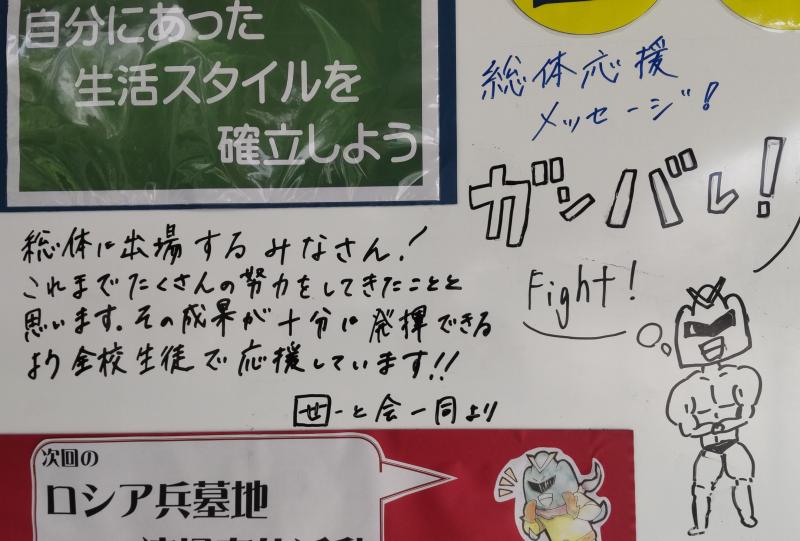 自分にあった
生活スタイルを
確立しよう
総体応援
メッセージ!
ガンバレ!
Fight!
総体に出場するみなさん!
これまでたくさんの努力をしてきたことと
思います。その成果が十分に発揮できる
よう全校生徒で応援しています!!
せーと会一同より
次回の
ロシア兵墓地